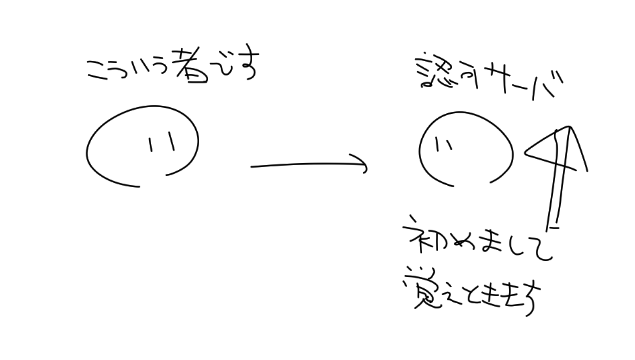 こういう者です
認可サーバ
初めまして
覚えときます